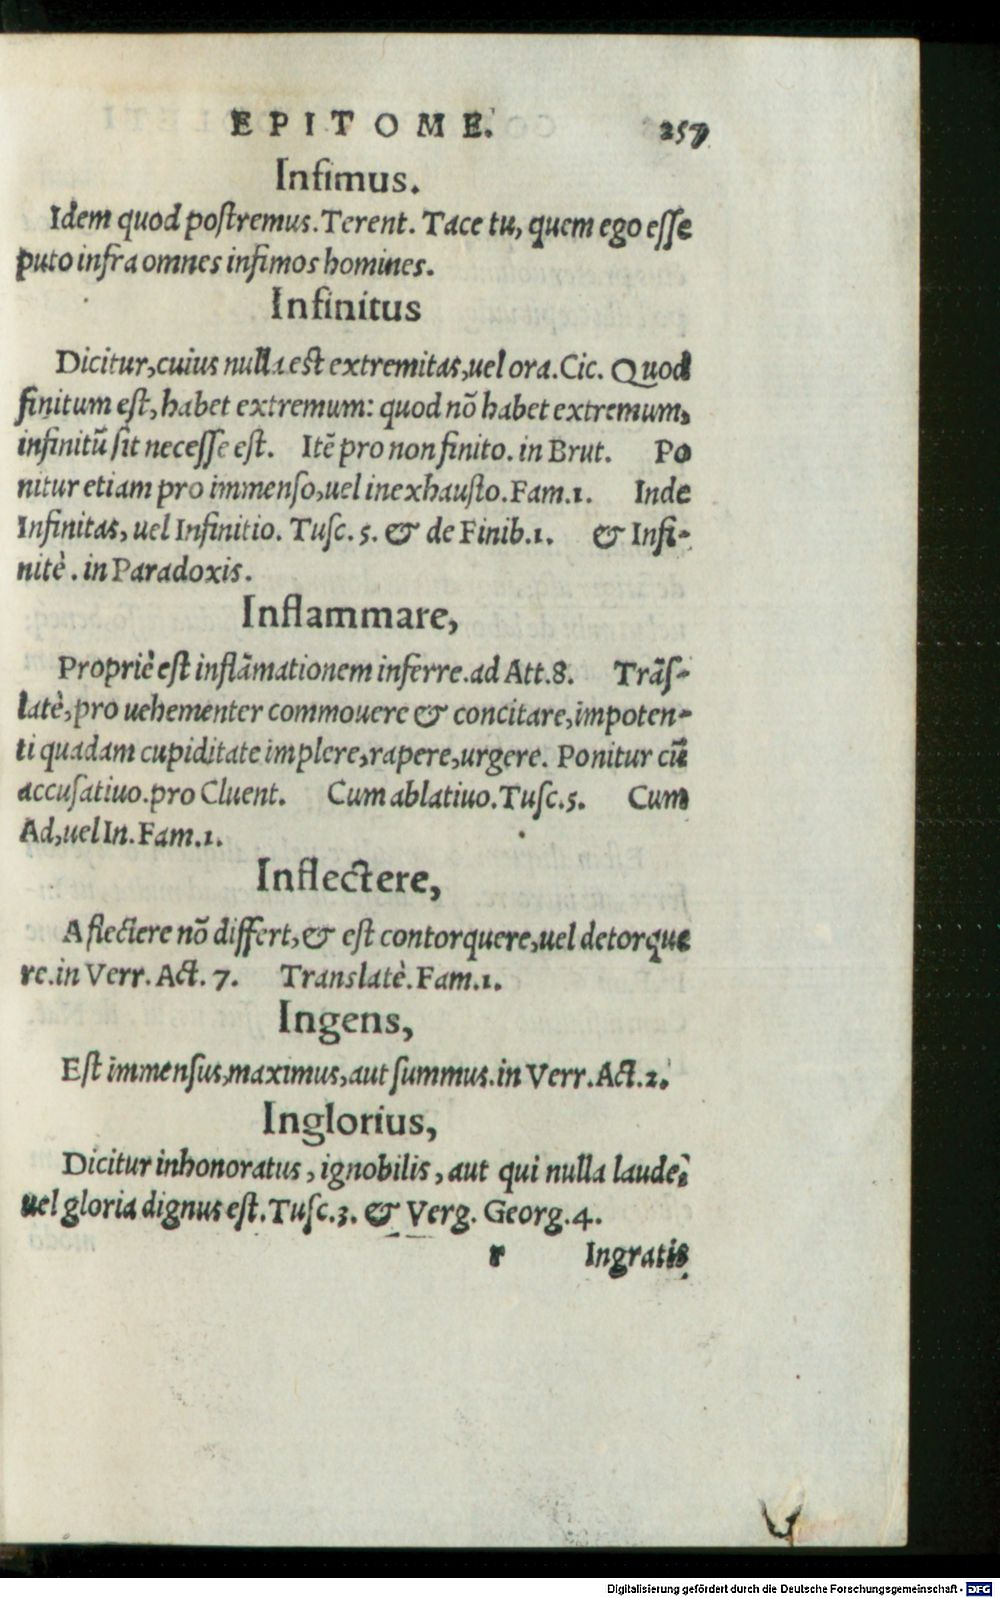 EPITOME. 257
Infimus.
Idem quod poſtremus. Terent. Tace tu, quem ego eſſe
puto infra omnes infimos homines.
Infinitus
Dicitur, cuius nulla eſt extremitas, uel ora. Cic. Quod
finitum eſt, habet extremum: quod nō habet extremum,
infinitū ſit neceſſe eſt. Itē pro non finito. in Brut. Po
nitur etiam pro immenſo, uel inexhauſto. Fam.1. Inde
Infinitas, uel Infinitio. Tuſc. 5. & de Finib.1. & Infi-
nitè. in Paradoxis.
Inflammare,
Propriè eſt inflāmationem inferre. ad Att.8. Trāſ-
latè, pro uehementer commouere & concitare, impoten-
ti quadam cupiditate implere, rapere, urgere. Ponitur cū
accuſatiuo. pro Cluent. Cum ablatiuo. Tuſc.5. Cum
Ad, uel In. Fam.1.
Inflectere,
A flectere nō differt, & eſt contorquere, uel detorque
re. in Verr. Act. 7. Translatè. Fam.1.
Ingens,
Eſt immenſus, maximus, aut ſummus. in Verr. Act.2.
Inglorius,
Dicitur inhonoratus, ignobilis, aut qui nulla laude,
uel gloria dignus eſt. Tuſc.3. & Verg. Georg.4.
r Ingratis
Digitalisierung gefördert durch die Deutsche Forschungsgemeinschaft - DFG